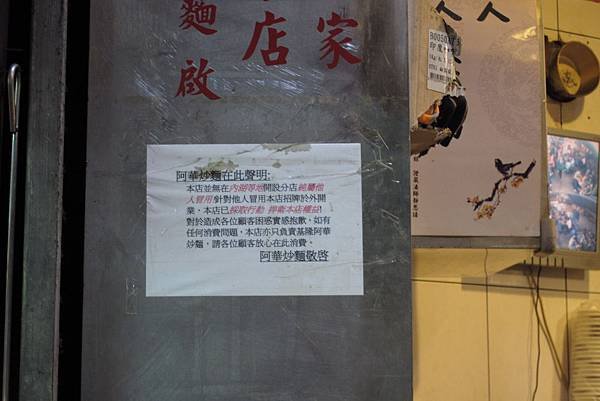 麵 店 家
啟
人 人
阿華炒麵在此聲明:
本店並無在內湖等地開設分店純屬他
人冒用!針對他人冒用本店招牌於外開
業，本店已採取行動 捍衛本店權益!
對於造成各位顧客困惑實感抱歉，如有
任何消費問題，本店亦只負責基隆阿華
炒麵，請各位顧客放心在此消費。
阿華炒麵敬啓